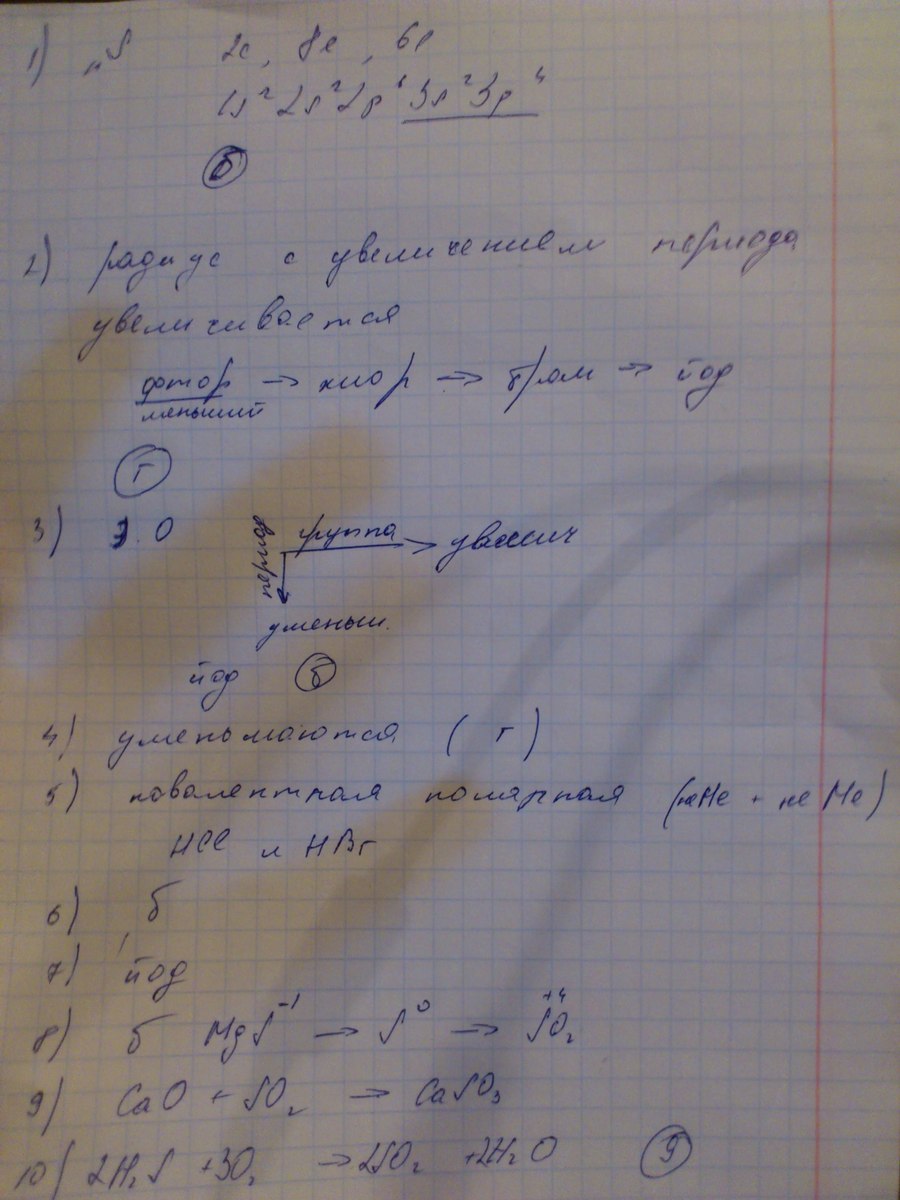 1) ₁₆S 2e, 8e, 6e
1s² 2s² 2p⁶ 3s² 3p⁴
б
2) радиус с увеличением периода
увеличивается
фтор → хлор → бром → йод
меньший
г
3) O период группа → увелич
уменьш.
йод б
4) уменьшаются (г)
5) ковалентная полярная (неМе + не Ме)
HCl и HBr
6) б
7) йод
8) б MgS⁻¹ → S⁰ → S⁺⁴O₂
9) CaO + SO₂ → CaSO₃
10) 2H₂S + 3O₂ → 2SO₂ + 2H₂O 9